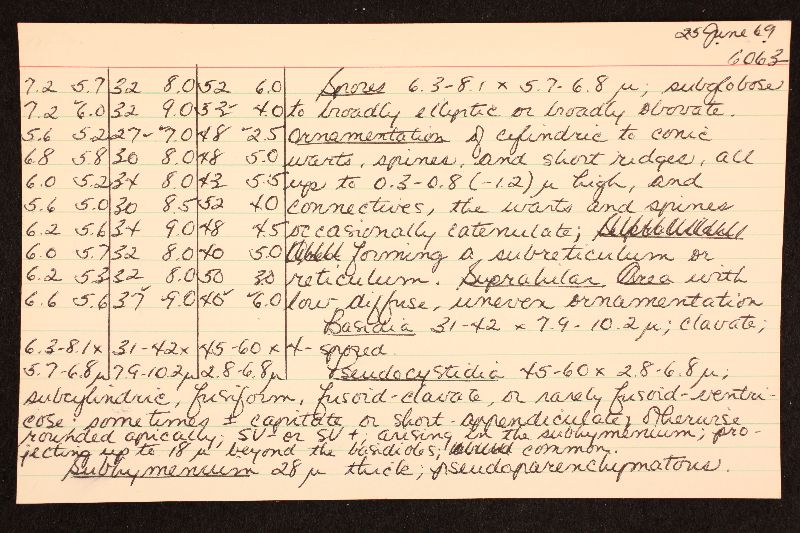 25 June 69
6063
7.2 5.7 32 8.0 52 6.0 Spores 6.3-8.1 x 5.7-6.8 µ; subglobose
7.2 6.0 32 9.0 53 4.0 to broadly elliptic or broadly obovate.
5.6 5.2 27 7.0 48 2.5 Ornamentation of cylindric to conic
6.8 5.8 30 8.0 48 5.0 warts, spines, and short ridges, all
6.0 5.2 34 8.0 43 5.5 up to 0.3-0.8 (-1.2) µ high, and
5.6 5.0 30 8.5 52 4.0 connectives, the warts and spines
6.2 5.6 34 9.0 48 4.5 occasionally catenulate;
6.0 5.7 32 8.0 40 5.0 forming a subreticulum or
6.2 5.3 32 8.0 50 3.0 reticulum. Suprahilar Area with
6.6 5.6 37 9.0 45 6.0 low diffuse, uneven ornamentation
Basidia 31-42 x 7.9-10.2 µ; clavate;
6.3-8.1 x 31-42 x 45-60 x 4-spored.
5.7-6.8 µ 7.9-10.2 µ 2.8-6.8 µ Pseudocystidia 45-60 x 2.8-6.8 µ;
subcylindric, fusiform, fusoid-clavate, or rarely fusoid-ventri-
cose; sometimes ± capitate or short-appendiculate, otherwise
rounded apically; SV- or SV+; arising in the subhymenium; pro-
jecting up to 18 µ beyond the basidioles; common.
Subhymenium 28 µ thick; pseudoparenchymatous.